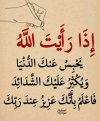 إِذَا رَأَيْتَ اللَّهَ
يَحْبِسُ عَنْكَ الدُّنْيَا
وَيُكْثِرُ عَلَيْكَ الشَّدَائِدَ
فَاعْلَمْ بِأَنَّكَ عَزِيزٌ عِنْدَ رَبِّكَ